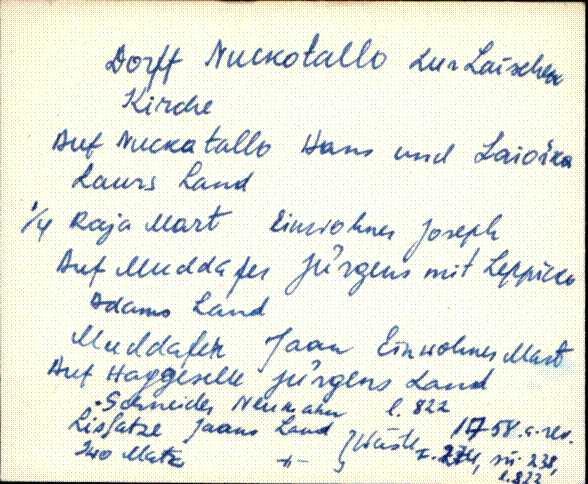 Dorff Nuckotallo zur Laischen
Kirche
Auf Nuckatallo Hans und Laioška
Laurs Land
1/4 Raja Mart Einwohner Joseph
Auf Muddafer Jürgens mit Leppicko
Adams Land
Muddafer Jaan Einwohner Mart
Auf Haggeselle Jürgens Land
Schneider Neumann l. 822
Jaans Land } Wüste 1758. a. rev.
Iwo Matz -"- f. 274, nü. 238,
l. 822